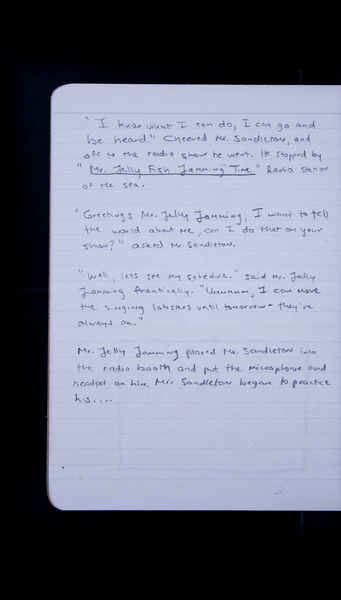 "I know what I can do, I can go and
be heard." Cheered Mr. Sandleton, and
off to the radio show he went. He stopped by
"Mr. Jelly Fish Jamming Time" Radio Station
of the sea.
"Greetings Mr. Jelly Jamming, I want to tell
the world about me, can I do that on your
show?" asked Mr. Sandleton.
"Well, lets see my schedule." said Mr. Jelly
Jamming frantically. "Ummmm, I can move
the singing lobsters until tomorrow - they're
always on."
Mr. Jelly Jamming placed Mr. Sandleton into
the radio booth and put the microphone and
headset on him. Mr. Sandleton began to practice
his....